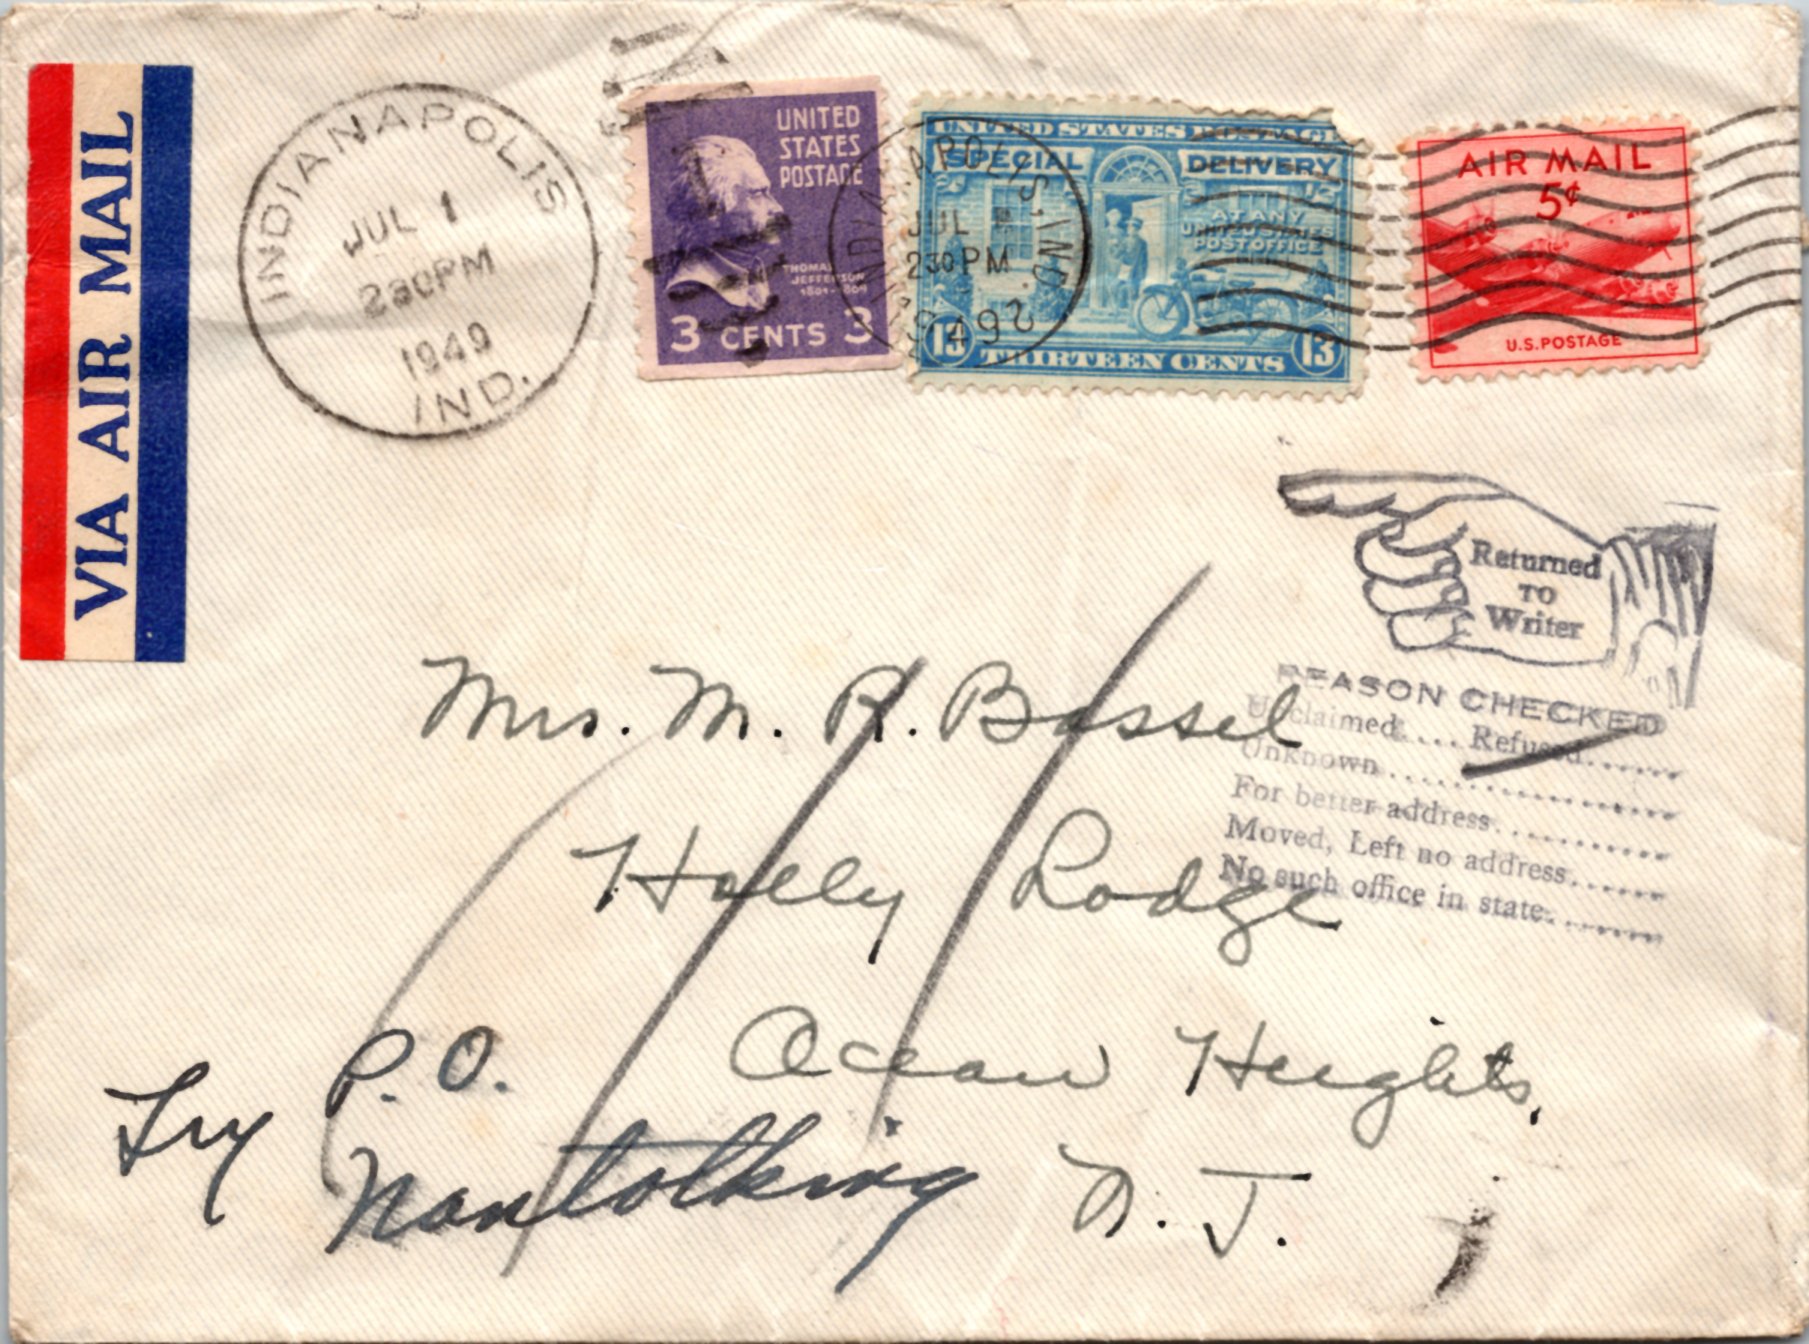 VIA AIR MAIL
INDIANAPOLIS
JUL 1
230PM
1949
IND.
UNITED
STATES
POSTAGE
THOMAS
JEFFERSON
1801-1809
3 CENTS 3
UNITED STATES POSTAGE
SPECIAL DELIVERY
AT ANY
UNITED STATES
POST OFFICE
13 THIRTEEN CENTS 13
INDIANAPOLIS, IND.
JUL
230PM
1949
AIR MAIL
5¢
U.S. POSTAGE
Returned
TO
Writer
REASON CHECKED
Unclaimed.... Refused......
Unknown....................
For better address............
Moved, Left no address......
No such office in state........
Mrs. M. R. Bassel
Holly Lodge
Ocean Heights,
N. J.
Try P.O.
Mantolking